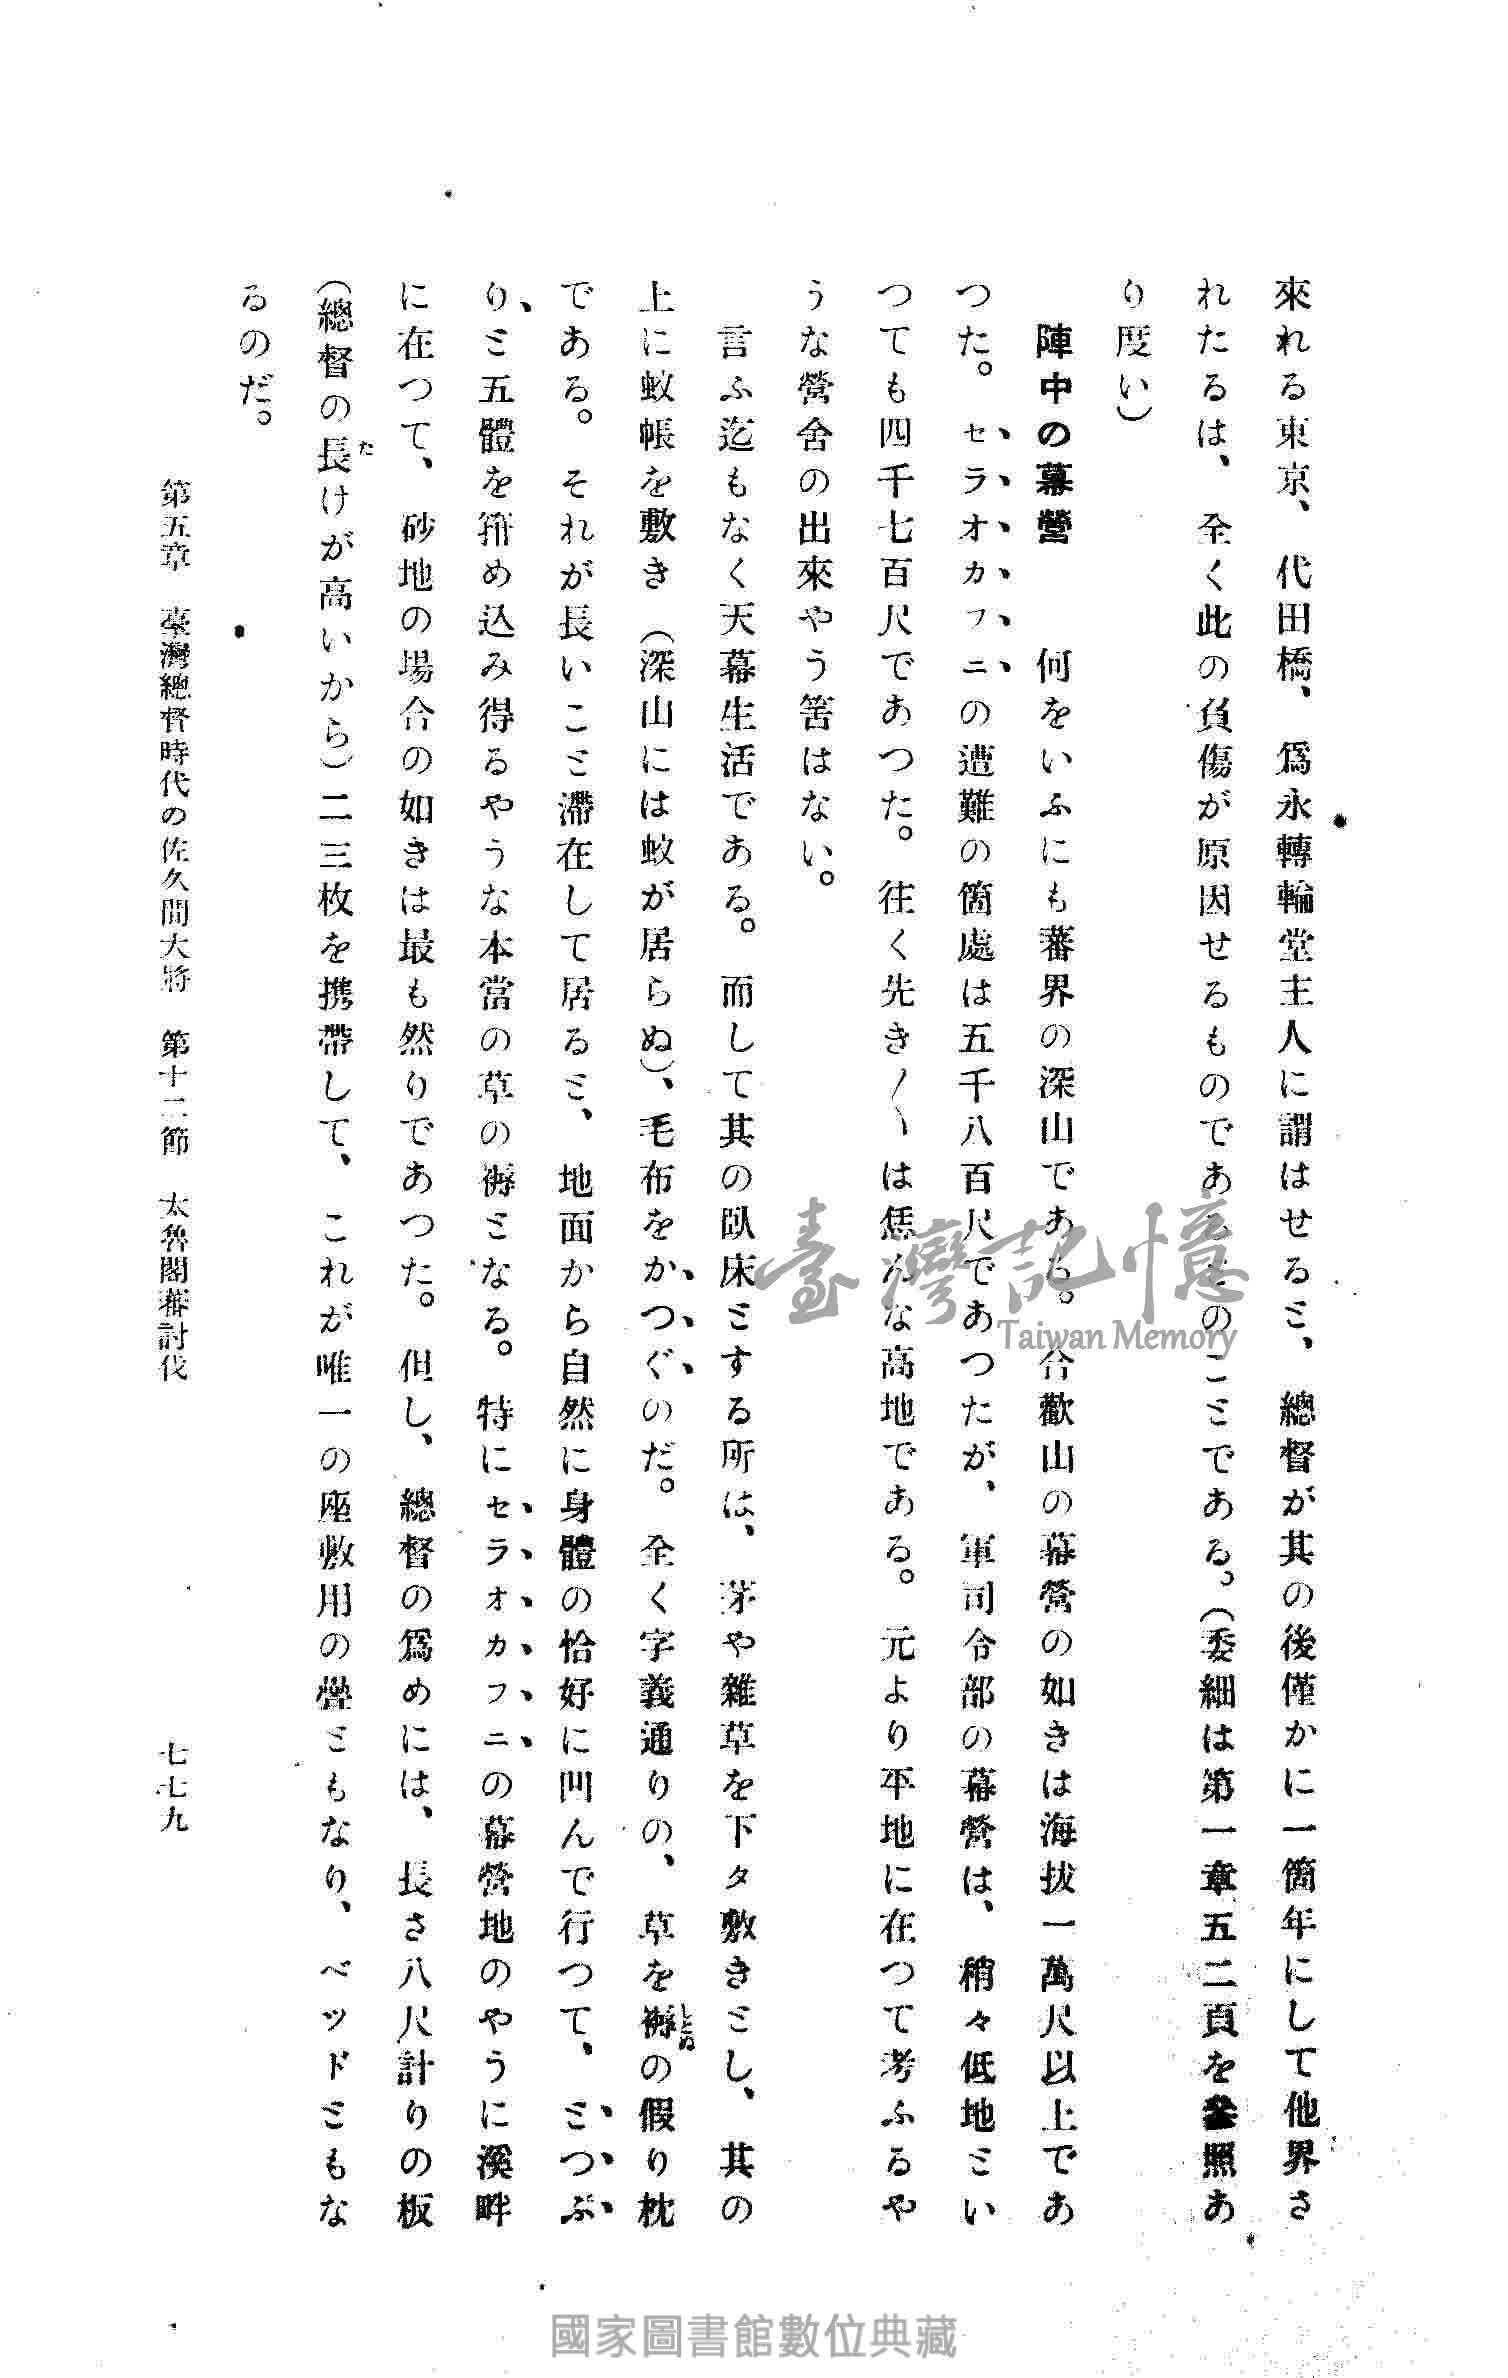 來れる東京、代田橋、爲永轉輪堂主人に謂はせるミ、總督が其の後僅かに一箇年にして他界さ
れたるは、全く此の負傷が原因せるものであるミのこミである。(委細は第一章五二頁を參照あ
り度い)
陣中の幕營　何をいふにも蕃界の深山である。合歡山の幕營の如きは海拔一萬尺以上であ
つた。セラオカフニの遭難の箇處は五千八百尺であつたが、軍司令部の幕營は、稍々低地ミい
つても四千七百尺であつた。往く先き〱は恁んな高地である。元より平地に在つて考ふるや
うな營舍の出來やう筈はない。
言ふ迄もなく天幕生活である。而して其の臥床ミする所は、茅や雜草を下タ敷きミし、其の
上に蚊帳を敷き（深山には蚊が居らぬ）、毛布をかつぐのだ。全く字義通りの、草を褥の假り枕
である。それが長いこミ滯在して居るミ、地面から自然に身體の恰好に凹んで行つて、ミつぷ
り、ミ五體を箝め込み得るやうな本當の草の褥ミなる。特にセラオカフニの幕營地のやうに溪畔
に在つて、砂地の場合の如きは最も然りであつた。但し、總督の爲めには、長さ八尺計りの板
（總督の長けが高いから）二三枚を携帶して、これが唯一の座敷用の疊ミもなり、ベッドミもな
るのだ。
第五章　臺灣總督時代の佐久間大將　第十二節　太魯閣蕃討伐
七七九
臺灣記憶
Taiwan Memory
國家圖書館數位典藏